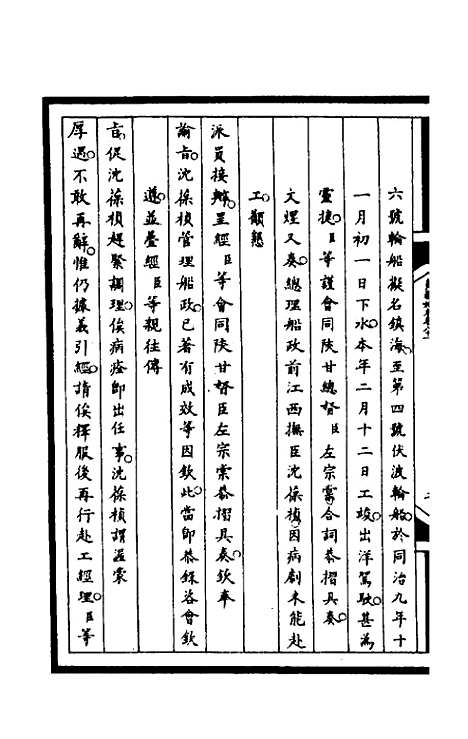 六號輪船擬名鎮海。至第四號伏波輪船。於同治九年十
一月初一日下水。本年二月十二日工竣。出洋駕駛。甚為
靈捷。臣等謹會同陝甘總督臣左宗棠。合詞恭摺具奏。
文煜又奏。總理船政前江西撫臣沈葆楨。因病劇未能赴
工。顴懇
派員接辦。呈經臣等會同陝甘督臣左宗棠恭摺具奏。欽奉
諭旨。沈葆楨管理船政。已著有成效等因。欽此。當即恭錄咨會欽
遵。並疊經臣等親往傳
旨。促沈葆楨趕緊調理。俟病痊即出任事。沈葆楨謂渥蒙
厚遇。不敢再辭。惟仍據義引經。請俟釋服後再行赴工經理。臣等